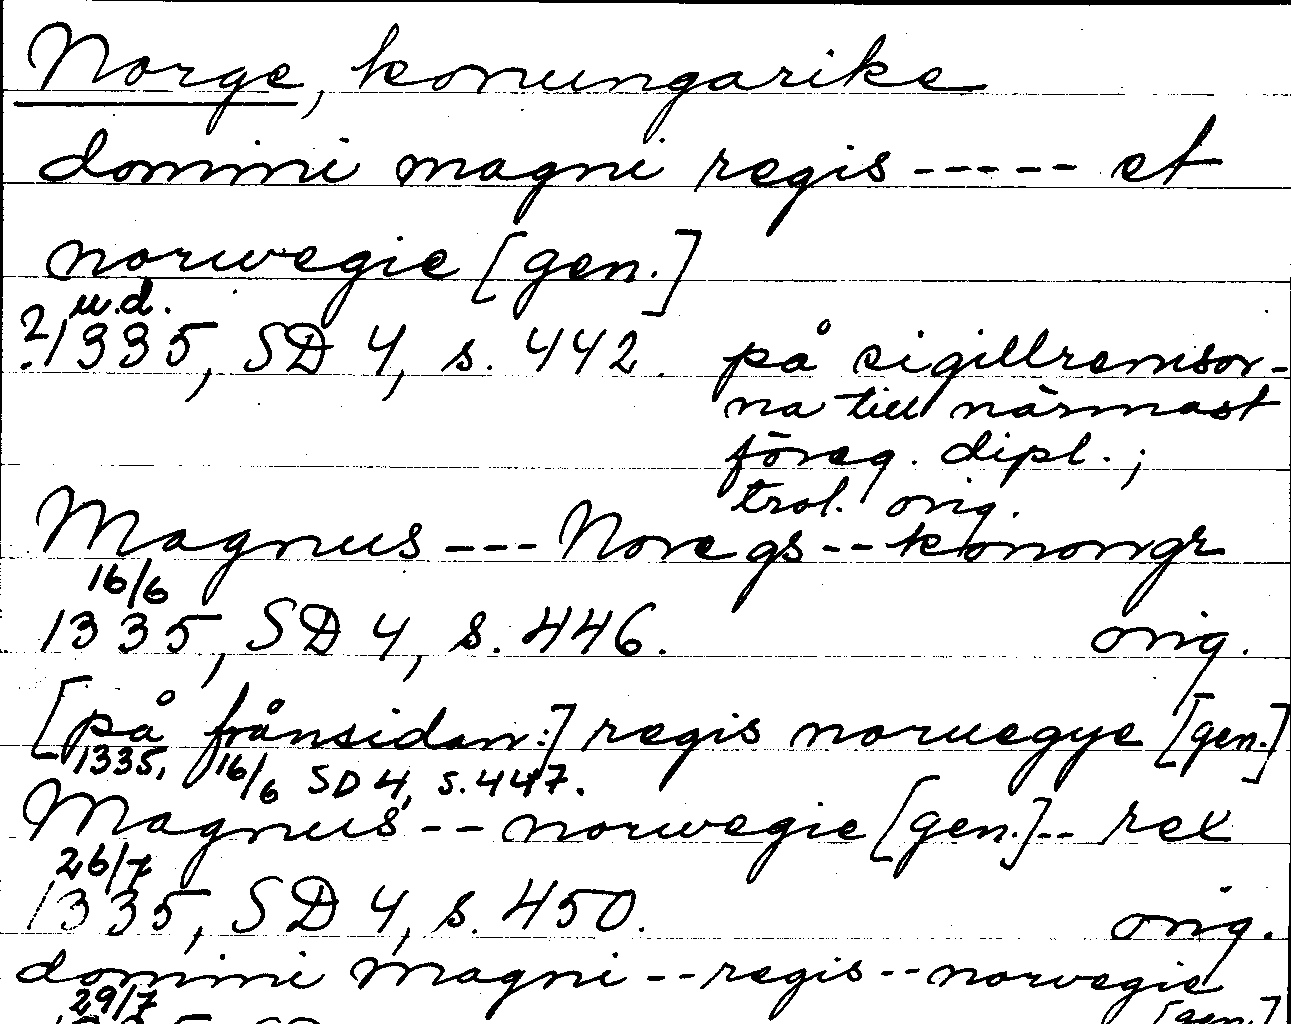 Norge, konungarike
domini magni regis ----- et
norwegie [gen.]
u.d.
?1335, SD 4, s. 442. på sigillremsor-
na till närmast
föreg. dipl.;
trol. orig.
Magnus --- Noregs -- konongr
16/6
1335, SD 4, s. 446. orig.
[på frånsidan:] regis noruegye [gen.]
1335, 16/6 SD 4, s. 447.
Magnus -- norwegie [gen.] -- rex
26/7
1335, SD 4, s. 450. orig.
domini Magni -- regis -- norvegie
29/7 [gen.]